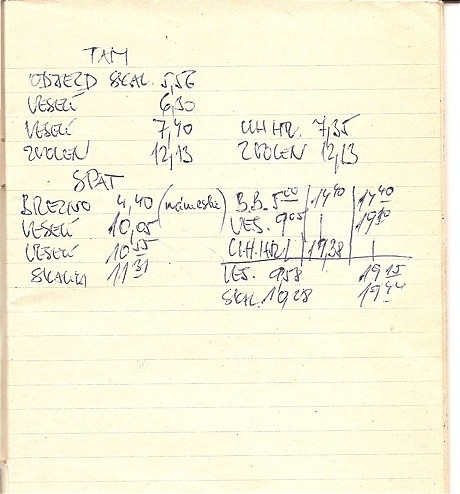 TAM
ODJEZD SKAL. 5,56
VESELÍ 6,30
VESELÍ 7,40 UH.HR. 7,35
ZVOLEN 12,13 ZVOLEN 12,13
SPÄT
BREZNO 4,40 (námestie) B.B. 5,00 14,40 14,40
VESELÍ 10,05 VES. 9,05 | 19,10
VESELÍ 10,55 UH.HR. | 19,38 |
SKALICA 11,31 VES. 9,58 19,15
SKAL. 10,28 19,44